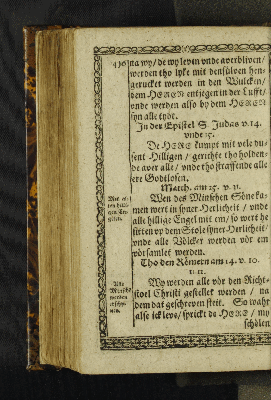 na wy / de wy leven vnde averbliven /
werden tho lyke mit densülven hen-
geruckt werden in den Wulcken /
dem HEREN entjegen in der Lufft /
vnde werden also by dem HEREN
syn alle tydt.
In der Epistel S. Judas v. 14.
vnde 15.
De HERE kumpt mit vele du-
sent Hilligen / gerichte tho holden-
de aver alle / vnde tho straffende alle
ere Godtlosen.
Matth. am 25. v. 31.
Mit al-
len hilli-
gen En-
gelen.
Wen des Minschen Söne ka-
men wert in syner Herlicheit / vnde
alle hillige Engel mit em / so wert he
sitten vp dem Stole syner Herlicheit /
vnde alle Völcker werden vör em
vörsamlet werden.
Tho den Römern am 14. v. 10.
11.
Alle
Minsche
werden
erschy-
nen.
Wy werden alle vör den Richt-
stoel Christi gestellet werden / na
dem dat geschreven steit. So wahr
alse ick leve / sprickt de HERE / my
schölen